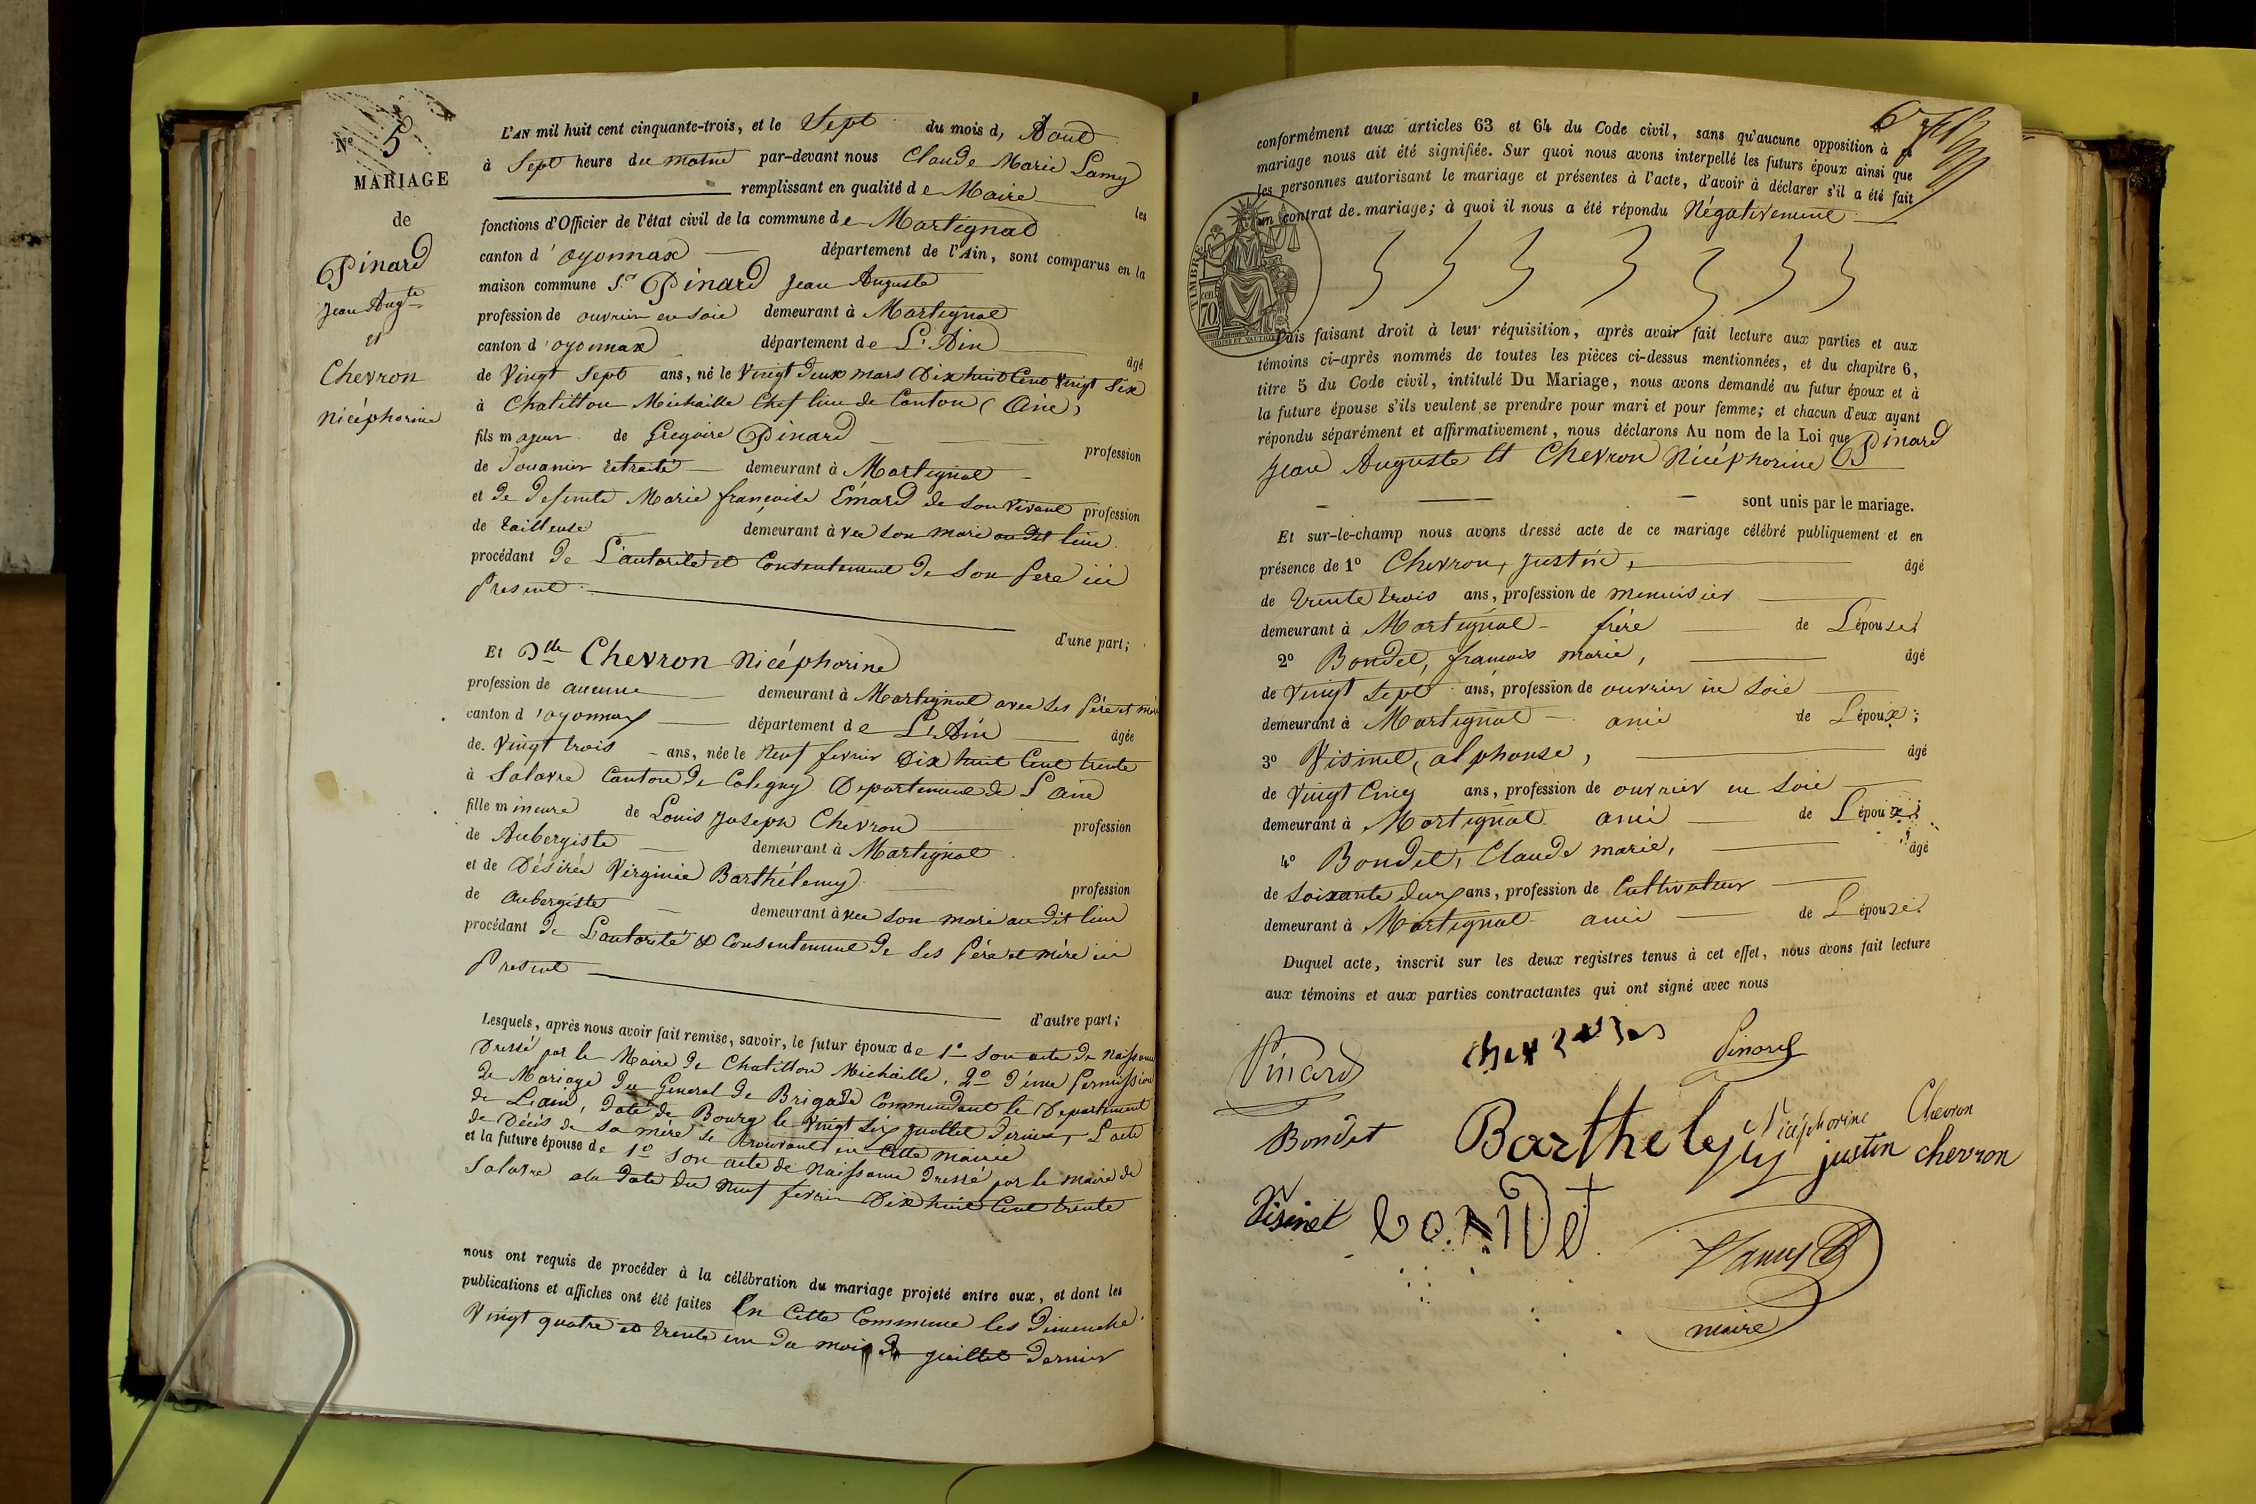 Nº 5
MARIAGE
de
Pinard
Jean Augte
et
Chevron
Nicéphorine
L'AN mil huit cent cinquante-trois, et le Sept du mois d, Aout
à Sept heure du matin par-devant nous Claude Marie Lamy
remplissant en qualité de Maire les
fonctions d'Officier de l'état civil de la commune de Martignat
canton d'oyonnax département de l'Ain, sont comparus en la
maison commune Sr Pinard Jean Auguste
profession de ouvrier en soie demeurant à Martignat
canton d'oyonnax département de L'Ain âgé
de Vingt Sept ans, né le Vingt deux mars Dix huit Cent Vingt Six
à Chatillon Michaille Chef lieu de Canton (Ain)
fils majeur de Gregoire Pinard profession
de Douanier retraité demeurant à Martignat
et de defunte Marie françoise Emard de son vivant profession
de tailleuse demeurant avec son mari au dit lieu
procédant de L'autorité et Consentement de Son Père ici
Présent d'une part;
Et Dlle Chevron Nicéphorine
profession de aucune demeurant à Martignat avec ses père et mère
canton d'oyonnax département de L'Ain âgée
de Vingt trois ans, née le Neuf fevrier Dix huit Cent trente
à Salavre Canton de Coligny Departement de L'ain
fille mineure de Louis Joseph Chevron profession
de Aubergiste demeurant à Martignat
et de Désirée Virginie Barthélemy profession
de aubergiste demeurant avec son mari au dit lieu
procédant de L'autorité & Consentement de ses Père et mère ici
Present d'autre part;
Lesquels, après nous avoir fait remise, savoir, le futur époux de 1º Son acte de Naissance
Dressé par le Maire de Chatillon Michaille, 2º d'une Permission
de Mariage du General de Brigade Commandant le Departement
de L'ain, daté de Bourg le Vingt Six Juillet dernier, L'acte
de Décès de sa mère se trouvant en Cette mairie
et la future épouse de 1º Son acte de Naissance dressé par le maire de
Salavre a la date du Neuf fevrier Dix huit Cent trente
nous ont requis de procéder à la célébration du mariage projeté entre eux, et dont les
publications et affiches ont été faites En Cette Commune les Dimenche
Vingt quatre et trente un du mois de Juillet dernier
6
conformément aux articles 63 et 64 du Code civil, sans qu'aucune opposition à ce
mariage nous ait été signifiée. Sur quoi nous avons interpellé les futurs époux ainsi que
les personnes autorisant le mariage et présentes à l'acte, d'avoir à déclarer s'il a été fait
un contrat de mariage; à quoi il nous a été répondu Négativement
TIMBRE
70
Puis faisant droit à leur réquisition, après avoir fait lecture aux parties et aux
témoins ci-après nommés de toutes les pièces ci-dessus mentionnées, et du chapitre 6,
titre 5 du Code civil, intitulé Du Mariage, nous avons demandé au futur époux et à
la future épouse s'ils veulent se prendre pour mari et pour femme; et chacun d'eux ayant
répondu séparément et affirmativement, nous déclarons Au nom de la Loi que Pinard
Jean Auguste et Chevron Nicéphorine
sont unis par le mariage.
Et sur-le-champ nous avons dressé acte de ce mariage célébré publiquement et en
présence de 1º Chevron, Justin, âgé
de trente trois ans, profession de menuisier
demeurant à Martignat frère de L'épouse.
2º Bondet, francois marie, âgé
de Vingt Sept ans, profession de ouvrier en Soie
demeurant à Martignat ami de L'époux;
3º Visinet, alphonse, âgé
de Vingt Cinq ans, profession de ouvrier en Soie
demeurant à Martignat ami de L'époux;
4º Bondet, Claude marie, âgé
de soixante deux ans, profession de Cultivateur
demeurant à Martignat ami de L'épouse.
Duquel acte, inscrit sur les deux registres tenus à cet effet, nous avons fait lecture
aux témoins et aux parties contractantes qui ont signé avec nous
Pinard
Pinard
Nicéphorine Chevron
Bondet
justin chevron
Visinet
bondet
Lamy
maire